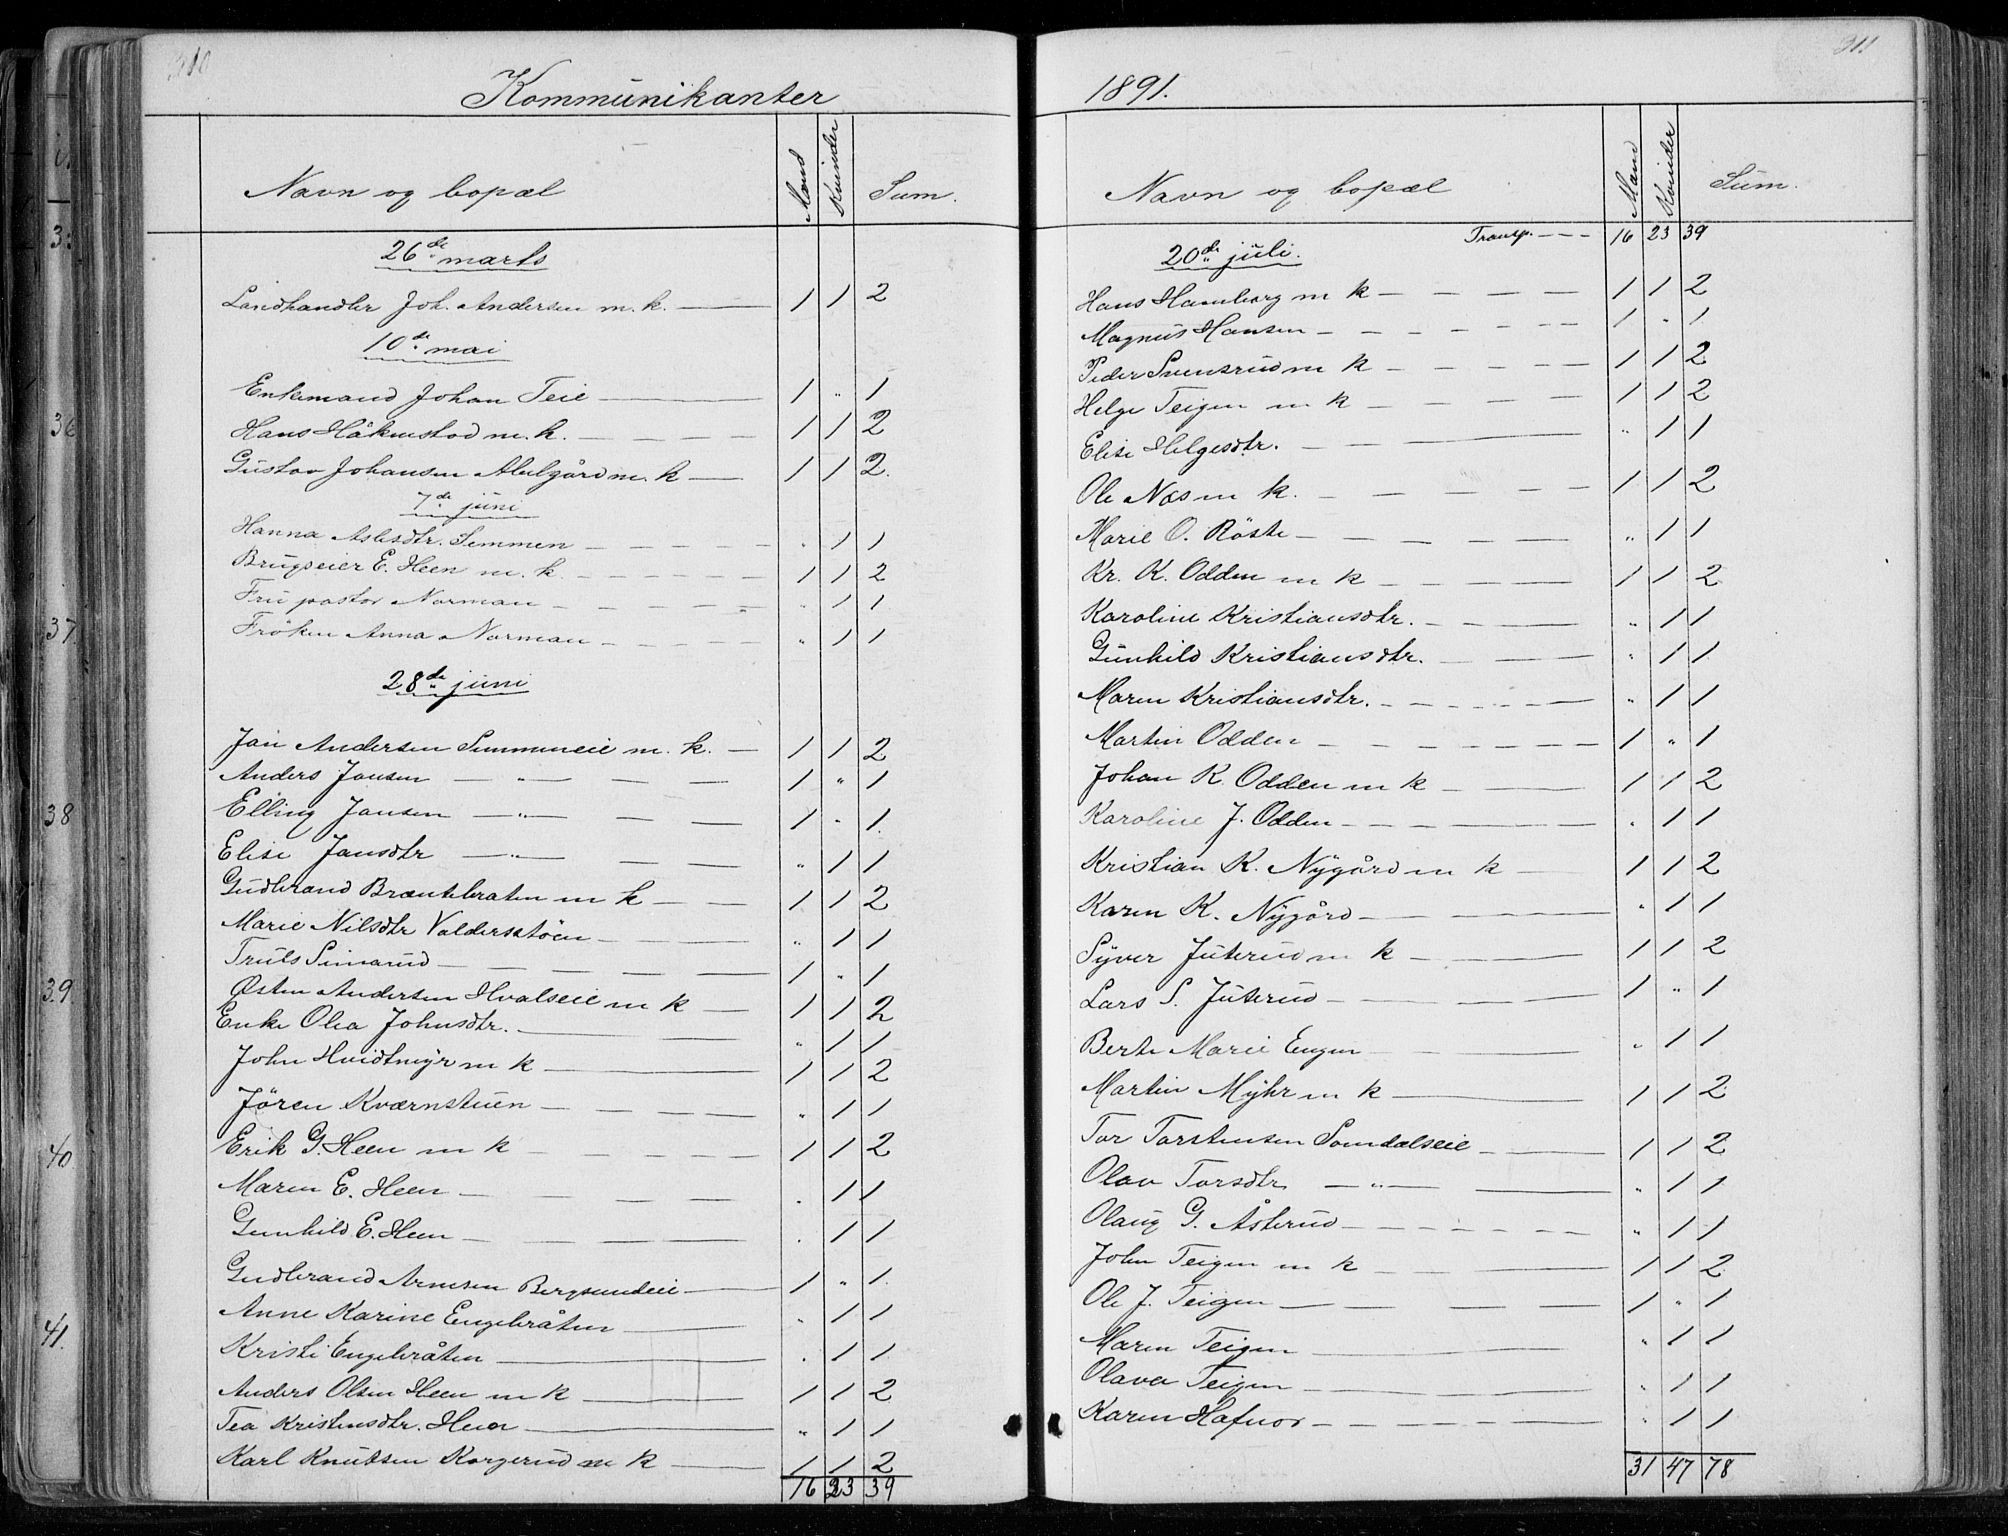 310
Kommunikanter
Navn og bopæl Mænd Kvinder Sum.
26de marts
Landhandler Joh. Andersen m. k. 1 1 2
10de mai
Enkemand Johan Teie 1 " 1
Hans Håkenstad m. k. 1 1 2
Gustav Johansen Abelgård m. k 1 1 2.
7de juni
Hanna Aslesdtr. Semmen " 1 1
Brugseier E. Heen m. k. 1 1 2
Fru pastor Norman " 1 1
Frøken Anna Norman " 1 1
28de juni
Jan Andersen Semmeneie m. k. 1 1 2
Anders Jansen — " — 1 " 1
Elling Jansen — " — 1 " 1.
Elise Jansdtr — " — " 1 1
Gudbrand Bræntebraten m k 1 1 2
Marie Nilsdtr Valdersstöen " 1 1
Truls Simarud 1 " 1
Østen Andersen Hvalseie m k 1 1 2
Enke Olea Johnsdtr. " 1 1
John Hvidtmyr m k 1 1 2
Jören Kværnstuen " 1 1
Erik G. Heen m k 1 1 2
Maren E. Heen " 1 1
Gunhild E. Heen " 1 1
Gudbrand Arnesen Bergsundeie 1 " 1.
Anne Karine Engebråten " 1 1
Kristi Engebråten " 1 1
Anders Olsen Heen m k 1 1 2
Tea Kristensdtr. " 1 1
Karl Knutsen Korgerud m k 1 1 2
16 23 39
311
1891.
Navn og bopæl Mænd Kvinder Sum.
Transp. 16 23 39
20de juli.
Hans Hamborg m k 1 1 2
Magnus Hansen 1 " 1
Peder Svensrud m k 1 1 2
Helge Teigen m k 1 1 2
Elise Helgesdtr. " 1 1
Ole Næs m k. 1 1 2
Marie O. Röste " 1 1
Kr. K. Odden m k 1 1 2
Karoline Kristiansdtr. " 1 1
Gunhild Kristiansdtr. " 1 1
Maren Kristiansdtr. " 1 1
Martin Odden 1 " 1
Johan K. Odden m k 1 1 2
Karoline J. Odden " 1 1
Kristian K. Nygård m k 1 1 2
Karen K. Nygård " 1 1
Syver Juterud m k 1 1 2
Lars S. Juterud 1 " 1
Berte Marie Engen " 1 1
Martin Myhr m k 1 1 2
Tor Torstensen Somdalseie 1 1 2
Olav Torsdtr — " — " 1 1
Olaug G. Åsterud " 1 1
John Teigen m k 1 1 2
Ole J. Teigen 1 " 1
Maren Teigen " 1 1
Olava Teigen " 1 1
Karen Hafnor " 1 1
31 47 78
36
37.
38
39.
40
41.